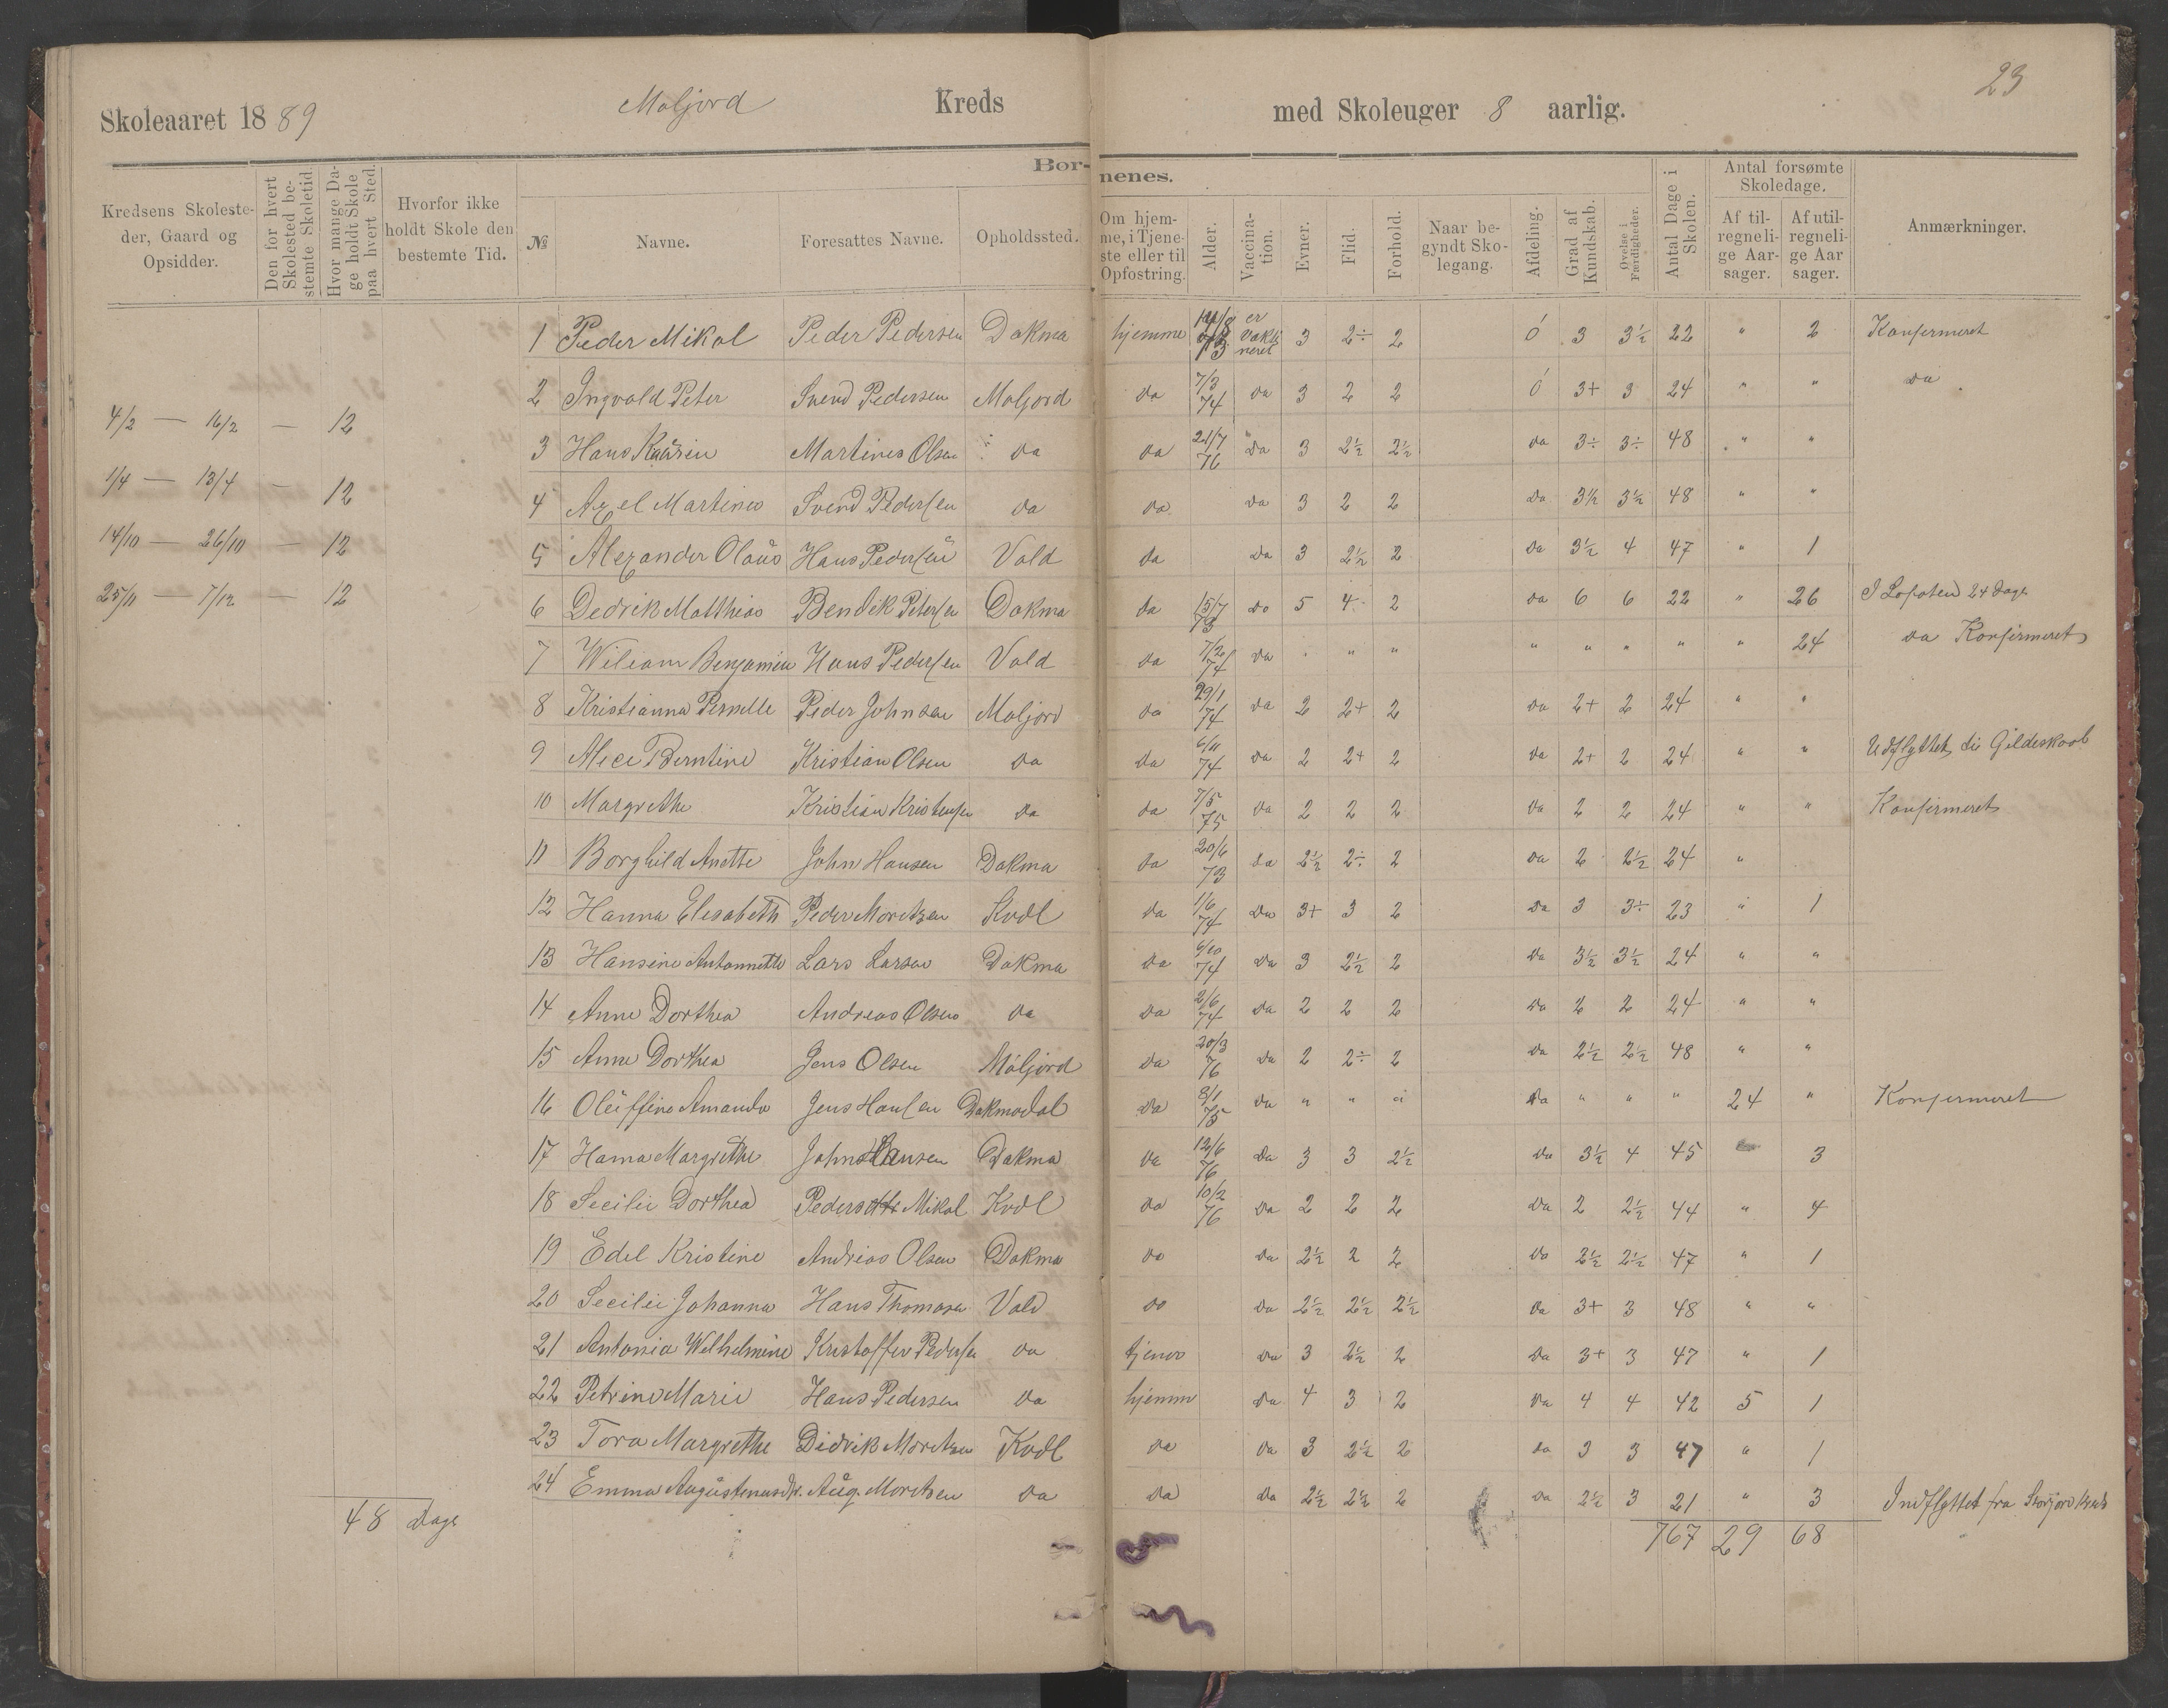 23
Skoleaaret 1889 Moljord Kreds med Skoleuger 8 aarlig.
Børnenes.
Kredsens Skolesteder, Gaard og Opsidder.
Den for hvert Skolested bestemte Skoletid.
Hvor mange Dage holdt Skole paa hvert Sted.
Hvorfor ikke holdt Skole den bestemte Tid.
№
Navne.
Foresattes Navne.
Opholdssted.
Om hjemme, i Tjeneste eller til Opfostring.
Alder.
Vaccination.
Evner.
Flid.
Forhold.
Naar begyndt Skolegang.
Afdeling.
Grad af Kundskab.
Øvelse i Færdigheder.
Antal Dage i Skolen.
Antal forsømte Skoledage.
Af tilregnelige Aarsager.
Af utilregnelige Aarsager.
Anmærkninger.
4/2 — 16/2 — 12
1/4 — 13/4 — 12
14/10 — 26/10 — 12
25/11 — 7/12 — 12
48 Dage
1 Peder Mikal Peder Pedersen Dokma hjemme er vaksineret 3 2÷ 2 ó 3 3½ 22 " 2 Konfirmeret
2 Ingvald Peter Svend Pedersen Moljord da 7/3 74 da 3 2 2 ó 3+ 3 24 " " da
3 Hans Kaarin Martines Olsen da da 21/7 76 da 3 2½ 2½ da 3÷ 3÷ 48 " "
4 Axel Martines Svend Pedersen da da da 3 2 2 da 3½ 3½ 48 " "
5 Alexander Olaus Hans Pedersen Vold da da 3 2½ 2 da 3½ 4 47 " 1
6 Dedrik Matthias Bendik Petersen Dokma da 15/7 73 do 5 4 2 da 6 6 22 " 26 I Lofoten 24 Dage
7 Wiliam Benjamin Hans Pedersen Vold da 7/2 74 da " " " " " " " " 24 da Konfirmeret
8 Kristianna Pernelle Peder Johnsen Moljord da 29/1 74 da 2 2+ 2 da 2+ 2 24 " "
9 Alece Berntine Kristian Olsen da da 6/11 74 da 2 2+ 2 da 2+ 2 24 " " Udflyttet til Gildeskaal
10 Margrethe Kristian Kristensen da da 7/5 75 da 2 2 2 da 2 2 24 " " Konfirmeret
11 Borghild Anette John Hansen Dokma da 20/6 73 da 2½ 2÷ 2 da 2 2½ 24 "
12 Hanna Elesabeth Peder Moritzen Kvdl da 1/6 74 da 3+ 3 2 da 3 3÷ 23 " 1
13 Hansine Antonnette Lars Larsen Dokma da 6/10 74 da 3 2½ 2 da 3½ 3½ 24 " "
14 Anne Dorthea Andreas Olsen da da 2/6 74 da 2 2 2 da 2 2 24 " "
15 Anne Dorthea Jens Olsen Moljord da 20/3 76 da 2 2÷ 2 da 2½ 2½ 48 " "
16 Oleffine Amanda Jens Hansen Dokmodal da 8/1 75 da " " " da " " " 24 " Konfirmeret
17 Hanna Margrethe John Hansen Dokma da 12/6 76 da 3 3 2½ da 3½ 4 45 3
18 Secilie Dorthea Peder Mikal Kvdl da 10/2 76 da 2 2 2 da 2 2½ 44 " 4
19 Edel Kristine Andreas Olsen Dokma do da 2½ 2 2 da 2½ 2½ 47 " 1
20 Secilie Johanna Hans Thomasen Vold do da 2½ 2½ 2½ da 3+ 3 48 " "
21 Antonia Welhelmine Kristoffer Pedersen da tjener da 3 2½ 2 da 3+ 3 47 " 1
22 Petrine Marie Hans Pedersen da hjemme da 4 3 2 da 4 4 42 5 1
23 Tora Margrethe Didrik Moritzen Kvdl da da 3 2½ 2 da 3 3 47 " 1
24 Emma Augustenusdtr. Aug. Moritzen da da da 2½ 2½ 2 da 2½ 3 21 " 3 Indflyttet fra Storjord Kreds
767 29 68